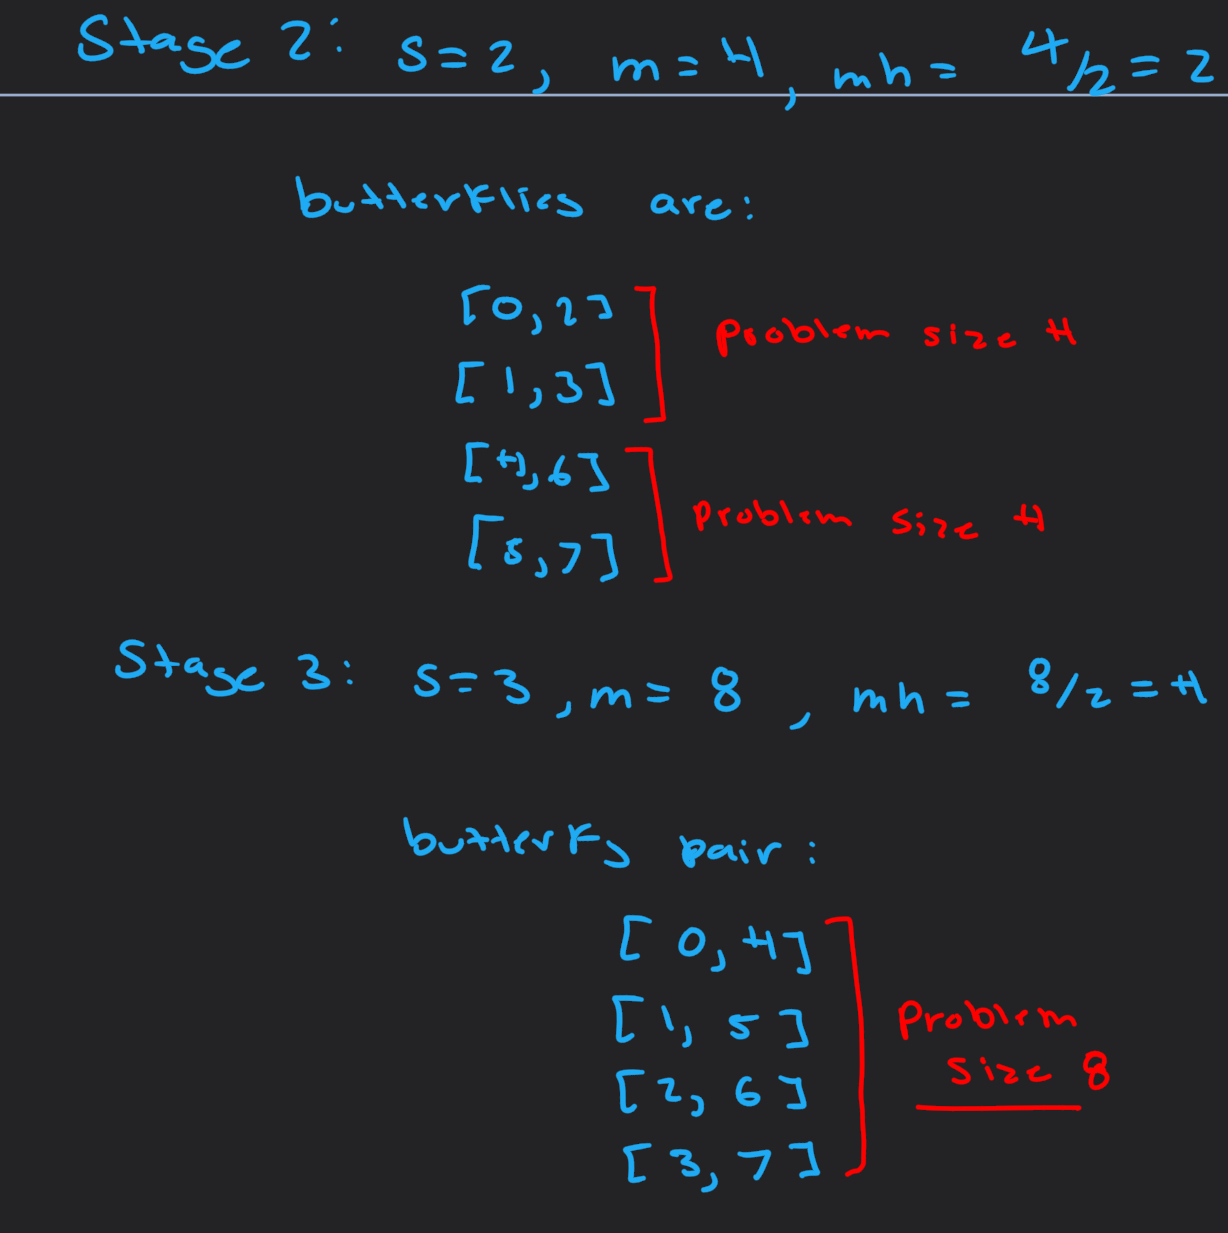 Stage 2: s=2, m=4, mh= 4/2=2
butterflies are:
[0,2]
[1,3]
problem size 4
[4,6]
[5,7]
problem size 4
Stage 3: s=3, m=8, mh= 8/2=4
butterfy pair:
[0,4]
[1,5]
[2,6]
[3,7]
Problem
size 8